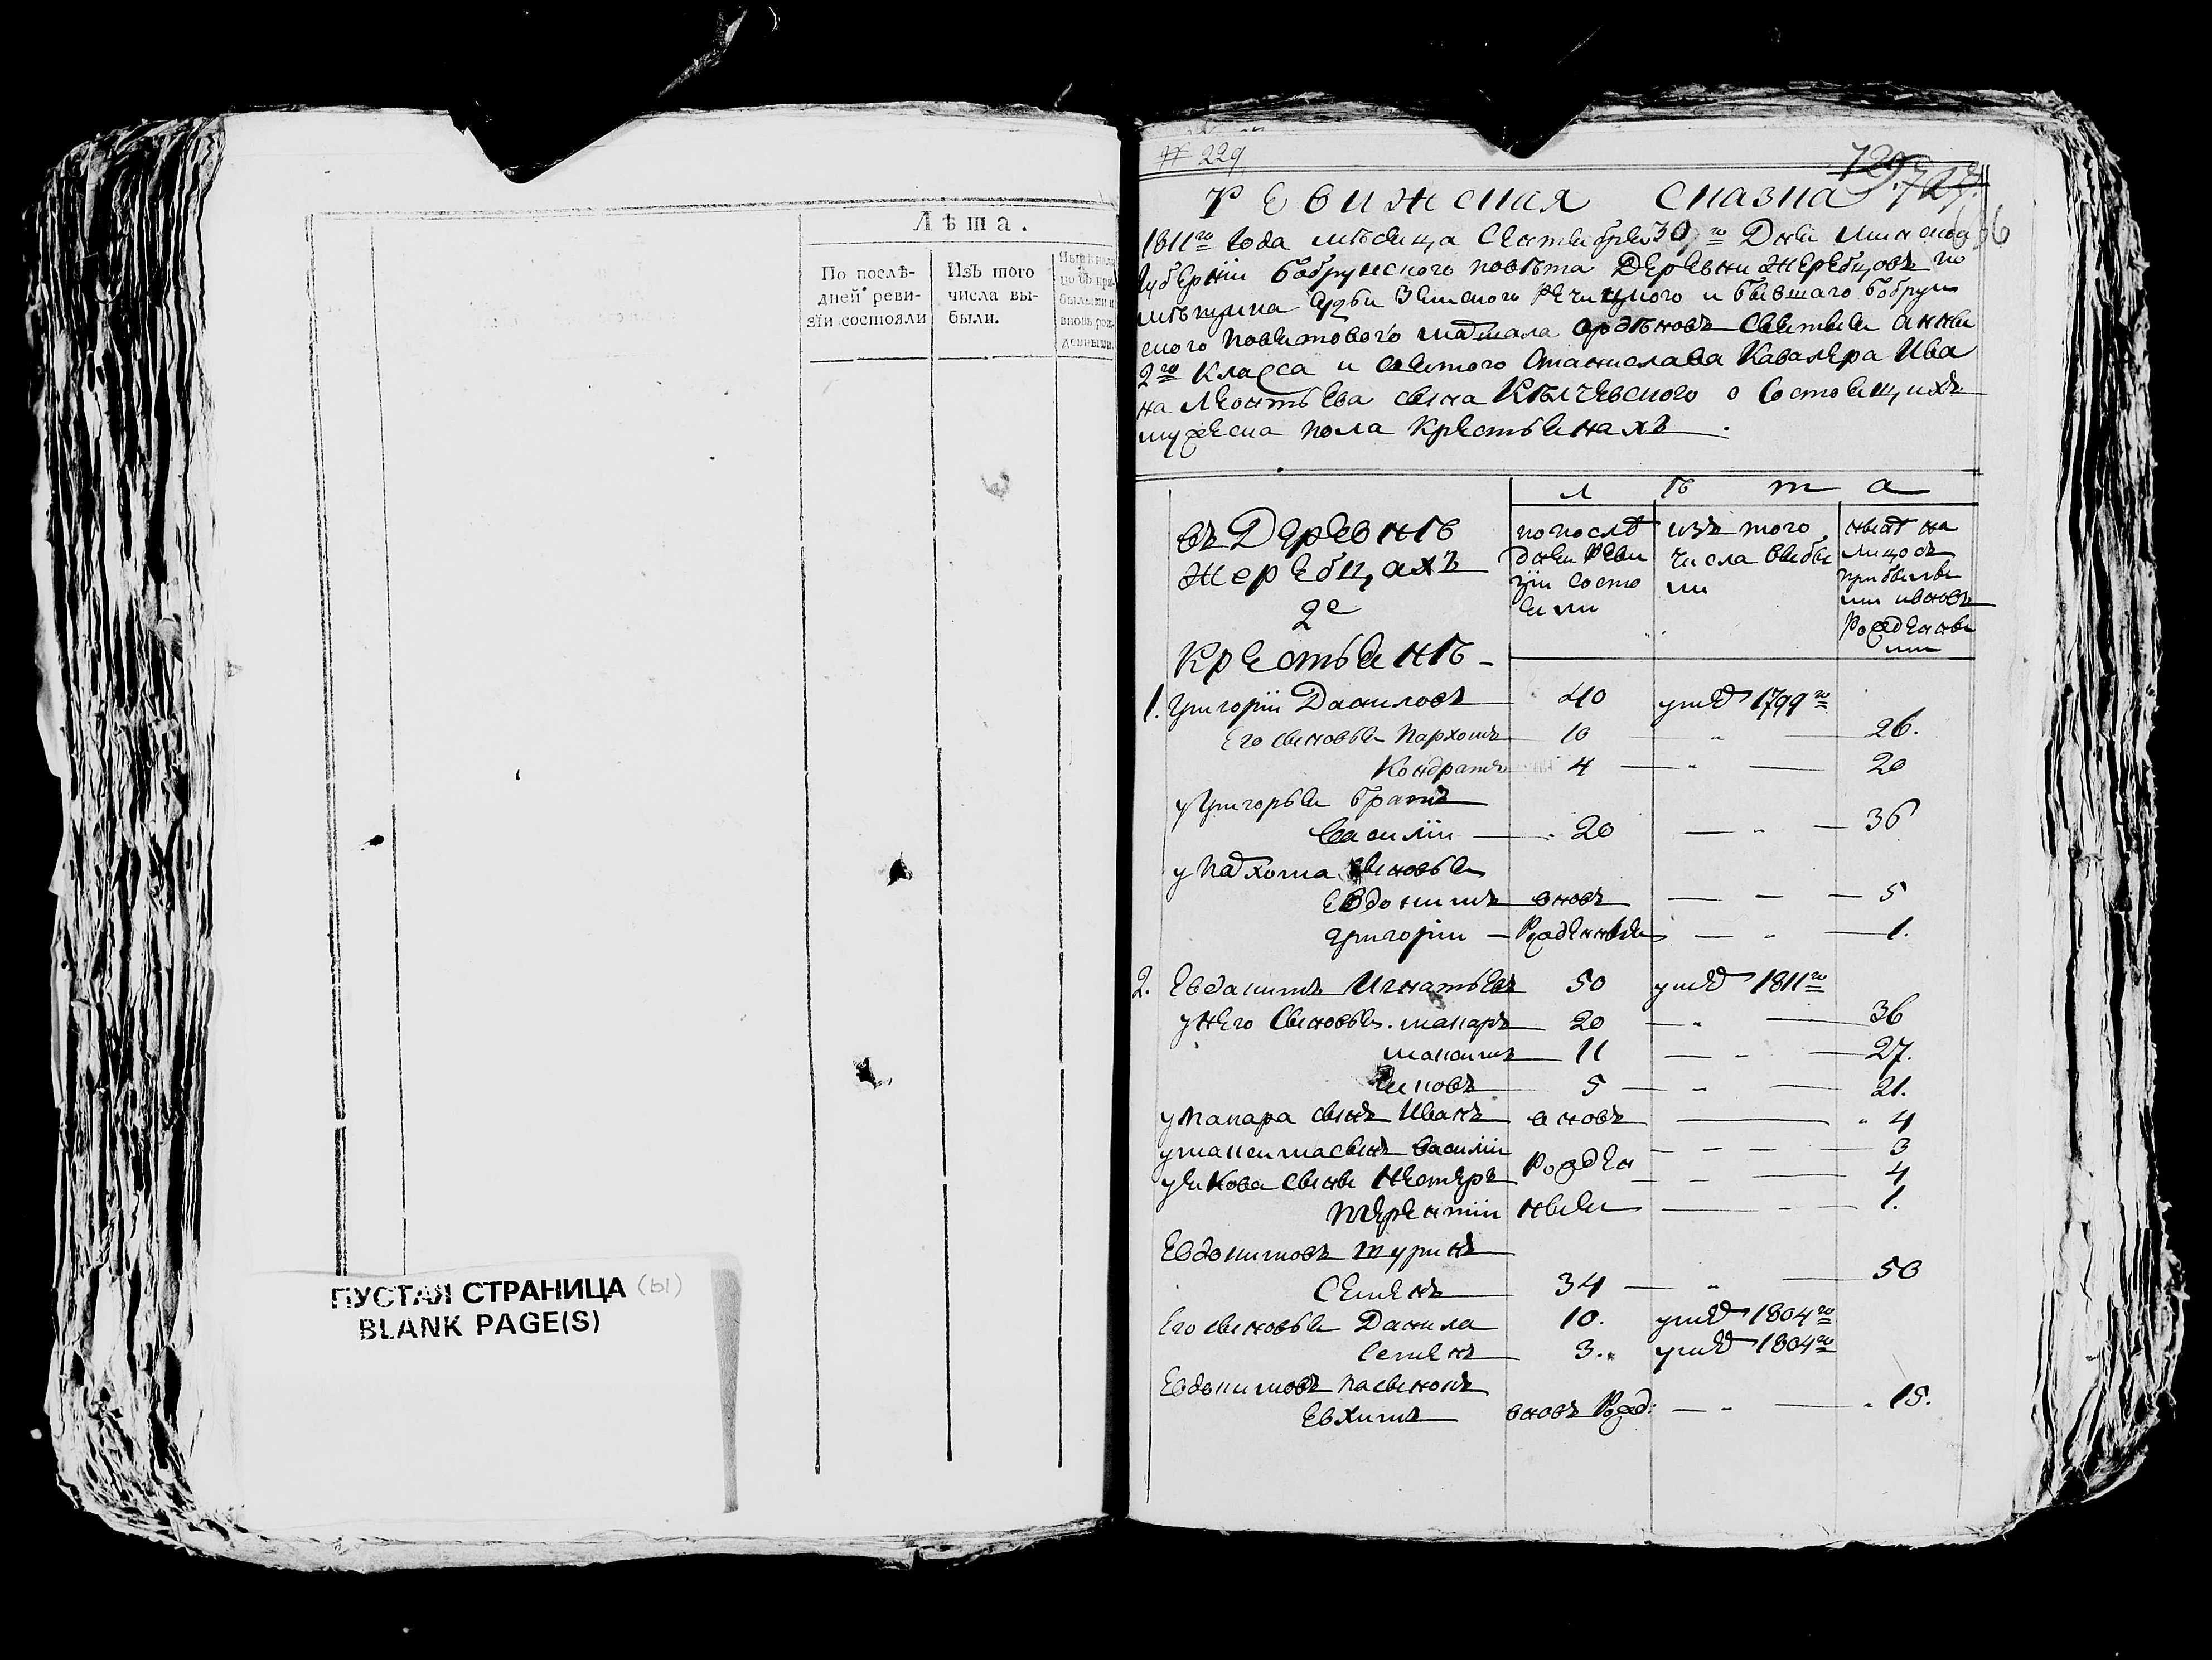 Лѣта.
По послѣ-
дней реви-
зїи состояли
Изъ того
числа вы-
были.
ПУСТАЯ СТРАНИЦА (ы)
BLANK PAGE(S)
№ 229
729. 727.
Ревижская сказка
1811го Года мѣсяца Сентября 30го Дня Минской
Губерніи Бобруйского повѣта Деревни Жеребцовъ по
мѣщика Судьи Земского Речицкого и бывшаго Бобруй
ского поветового маршала ордѣновъ святыя Анны
2го Класса и святого Станислава Кавалера Ива
на Леонтьева сына о Состоящихъ
мужеска пола Крестьянахъ.
л ѣ т а
въ Деревнѣ
Жеребцахъ
2е
Крестьянѣ
по послѣ
дней Реви
зіи состо
яли
изъ того
числа выбы
ли
ныня на
лицо съ
прибылы
ми и вновь
Рожденны
ми
1. Григоріи Даниловъ 40 умер 1799го
Его сыновья Пархомъ 10 26.
Кондратъ 4 20
у Григорья братъ
Василіи 20 36
у Пархома сыновья
Евдокимъ вновь 5
Григоріи Рожденныя 1.
2. Евдакимъ Игнатьевъ 50 умер 1811го
у него Сыновья. макаръ 20 36
максимъ 11 27.
Яковъ 5 21.
у Макара сынъ Иванъ вновь 4
у максима сынъ василіи 3
у якова сыны Нестеръ Рожден 4
Терентіи ныя 1.
Евдокимовъ шуринъ
Семенъ 34 50
Его сыновья Данила 10. умер 1804го
Семенъ 3. умер 1804го
Евдокимовъ пасынокъ
Евхимъ вновь Рожд: 15.